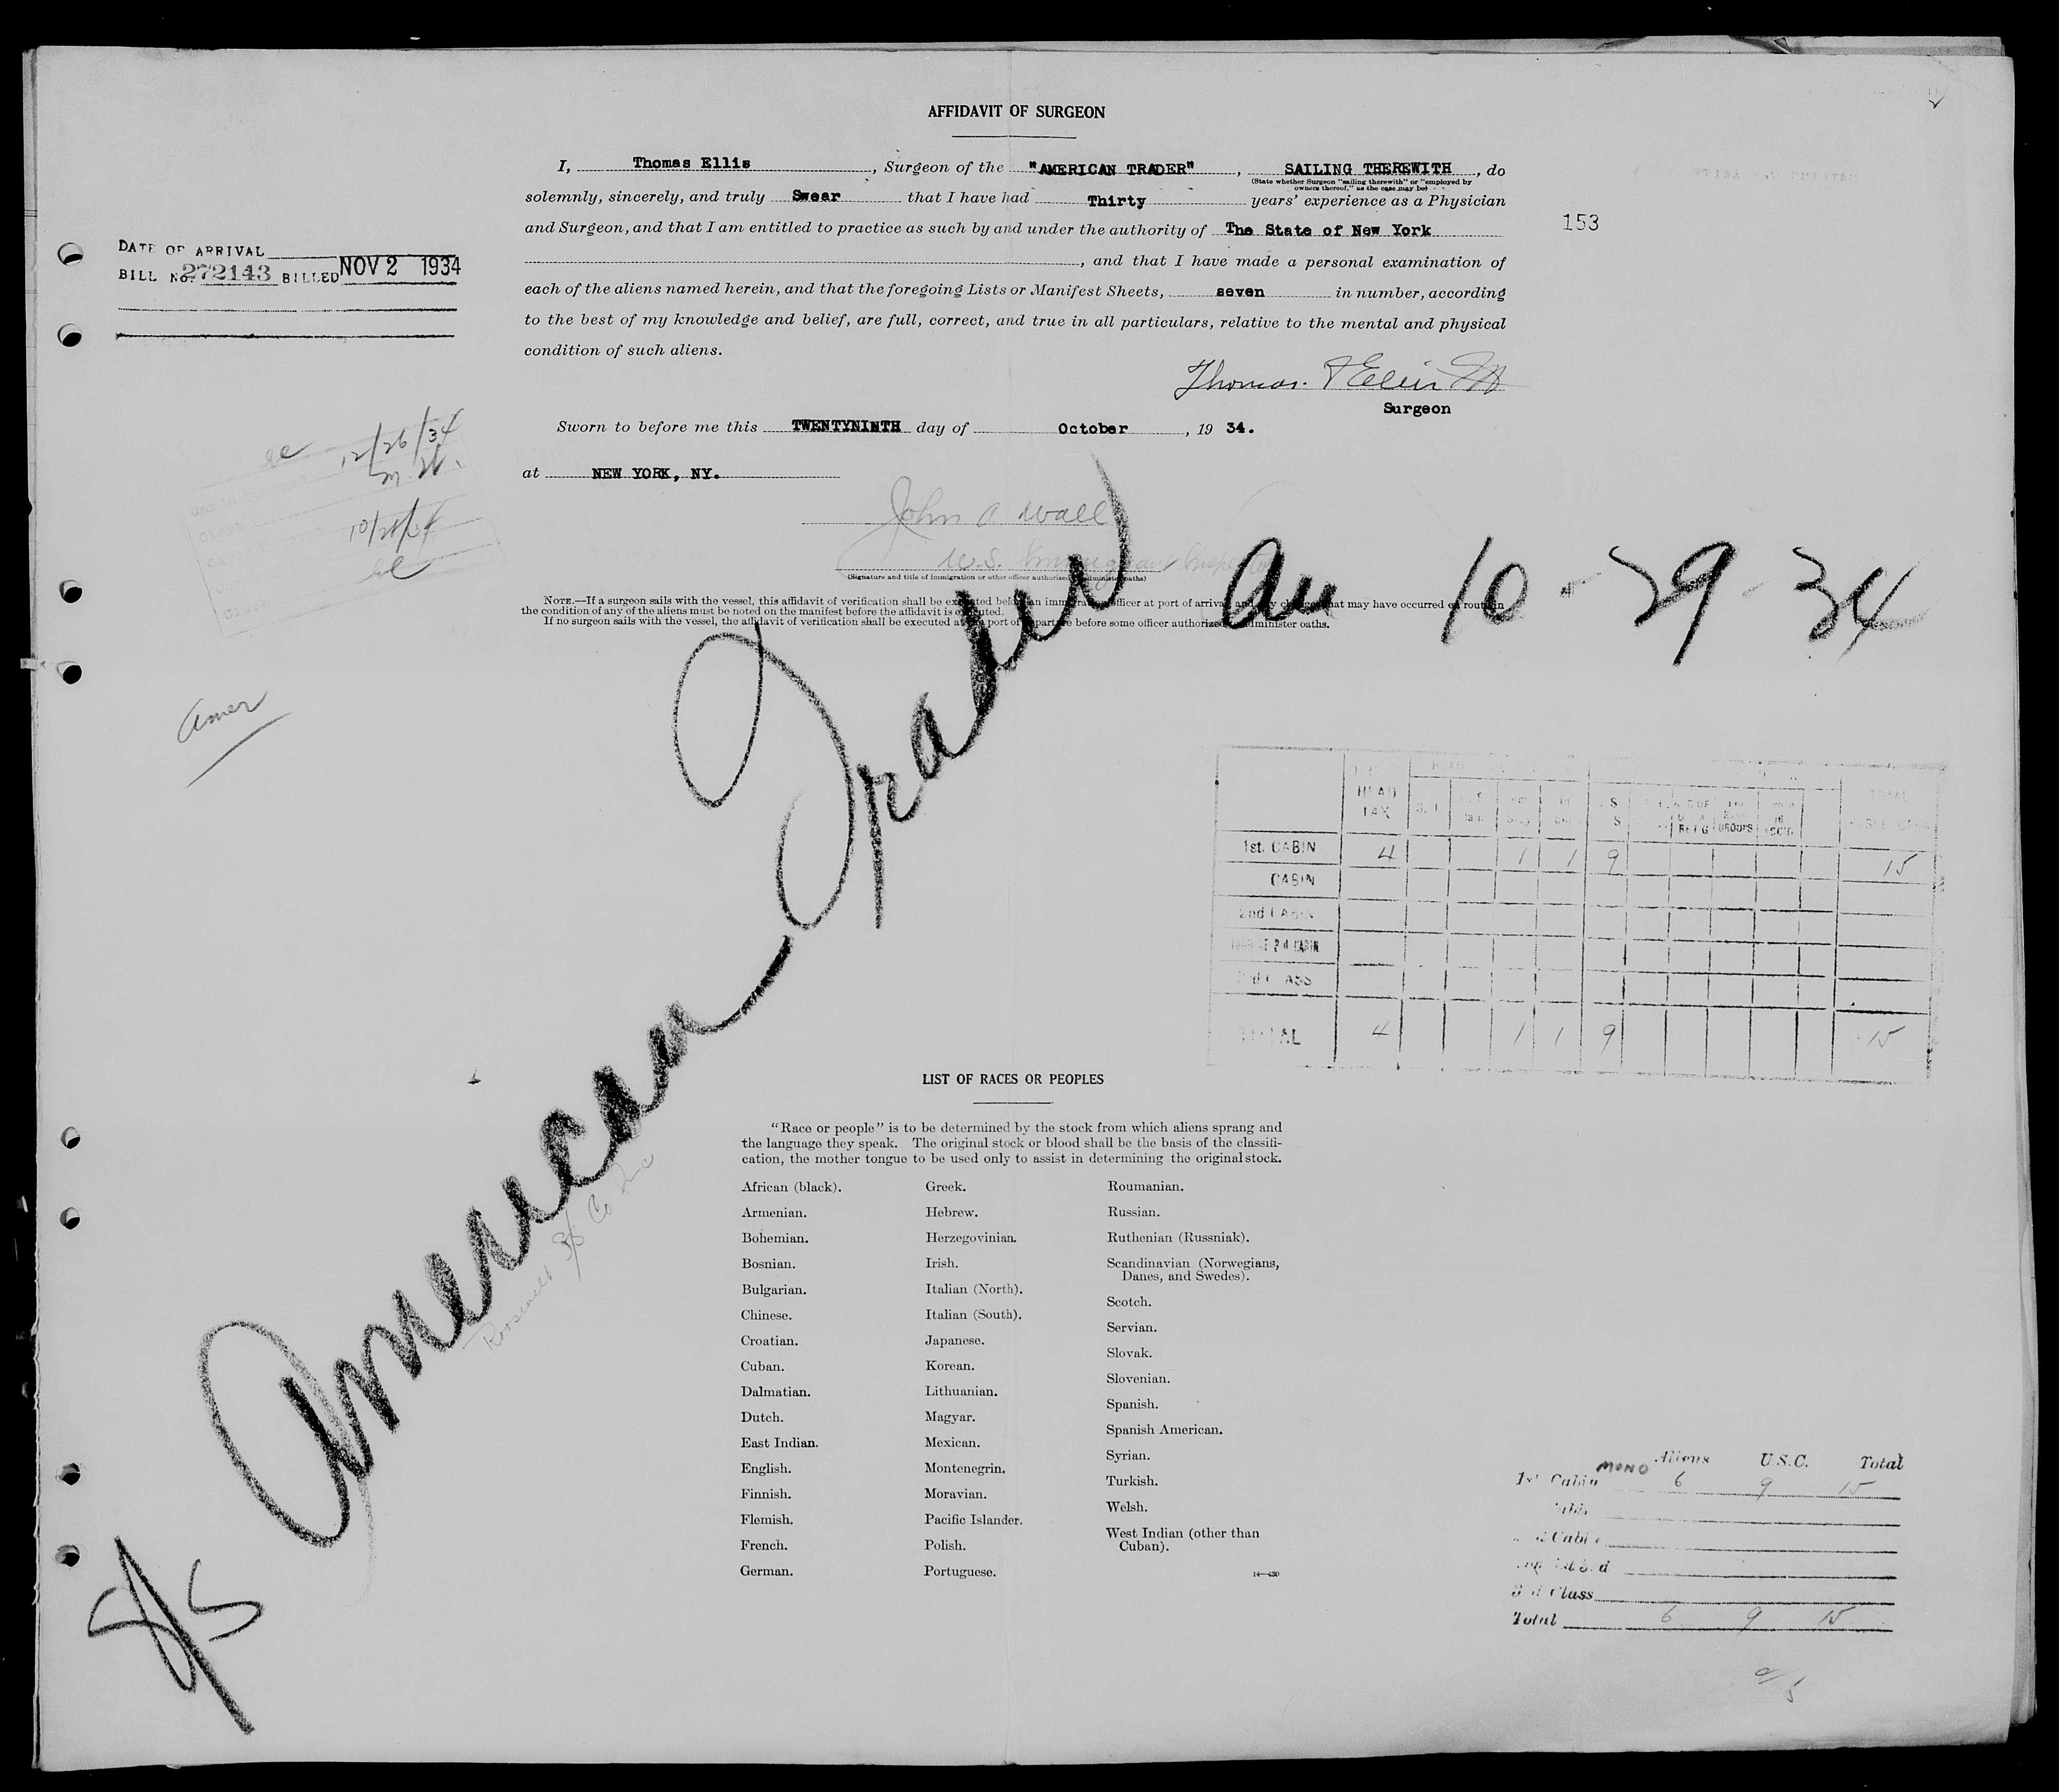 AFFIDAVIT OF SURGEON
I, Thomas Ellis, Surgeon of the "AMERICAN TRADER", SAILING THEREWITH, do
(State whether Surgeon "sailing therewith" or "employed by
owners thereof," as the case may be)
solemnly, sincerely, and truly Swear that I have had Thirty years' experience as a Physician
and Surgeon, and that I am entitled to practice as such by and under the authority of The State of New York
, and that I have made a personal examination of
each of the aliens named herein, and that the foregoing Lists or Manifest Sheets, seven in number, according
to the best of my knowledge and belief, are full, correct, and true in all particulars, relative to the mental and physical
condition of such aliens.
153
DATE OF ARRIVAL
BILL No. 272143 BILLED NOV 2 1934
Thomas
Surgeon
Sworn to before me this TWENTYNINTH day of October, 19 34.
at NEW YORK, NY.
12/26/34
John A Wall
U.S. Immigrant Inspector
(Signature and title of immigration or other officer authorized to administer oaths)
NOTE.—If a surgeon sails with the vessel, this affidavit of verification shall be executed before an immigration officer at port of arrival, and any changes that may have occurred en route in
the condition of any of the aliens must be noted on the manifest before the affidavit is executed.
If no surgeon sails with the vessel, the affidavit of verification shall be executed at the port of departure before some officer authorized to administer oaths.
10-29-34
Amer
S/S American Trader
Roosevelt S/S Co Inc
HEAD TAX
TOTAL
REFG GROUPS
1st. CABIN 4 1 1 9 15
CABIN
2nd CABIN
TOTAL 4 1 1 9 15
LIST OF RACES OR PEOPLES
"Race or people" is to be determined by the stock from which aliens sprang and
the language they speak. The original stock or blood shall be the basis of the classifi-
cation, the mother tongue to be used only to assist in determining the original stock.
African (black).
Armenian.
Bohemian.
Bosnian.
Bulgarian.
Chinese.
Croatian.
Cuban.
Dalmatian.
Dutch.
East Indian.
English.
Finnish.
Flemish.
French.
German.
Greek.
Hebrew.
Herzegovinian.
Irish.
Italian (North).
Italian (South).
Japanese.
Korean.
Lithuanian.
Magyar.
Mexican.
Montenegrin.
Moravian.
Pacific Islander.
Polish.
Portuguese.
Roumanian.
Russian.
Ruthenian (Russniak).
Scandinavian (Norwegians,
Danes, and Swedes).
Scotch.
Servian.
Slovak.
Slovenian.
Spanish.
Spanish American.
Syrian.
Turkish.
Welsh.
West Indian (other than
Cuban).
14—430
Aliens U.S.C. Total
1st Cabin MONO 6 9 15
Cabin
Cabin
3rd Class
Total 6 9 15